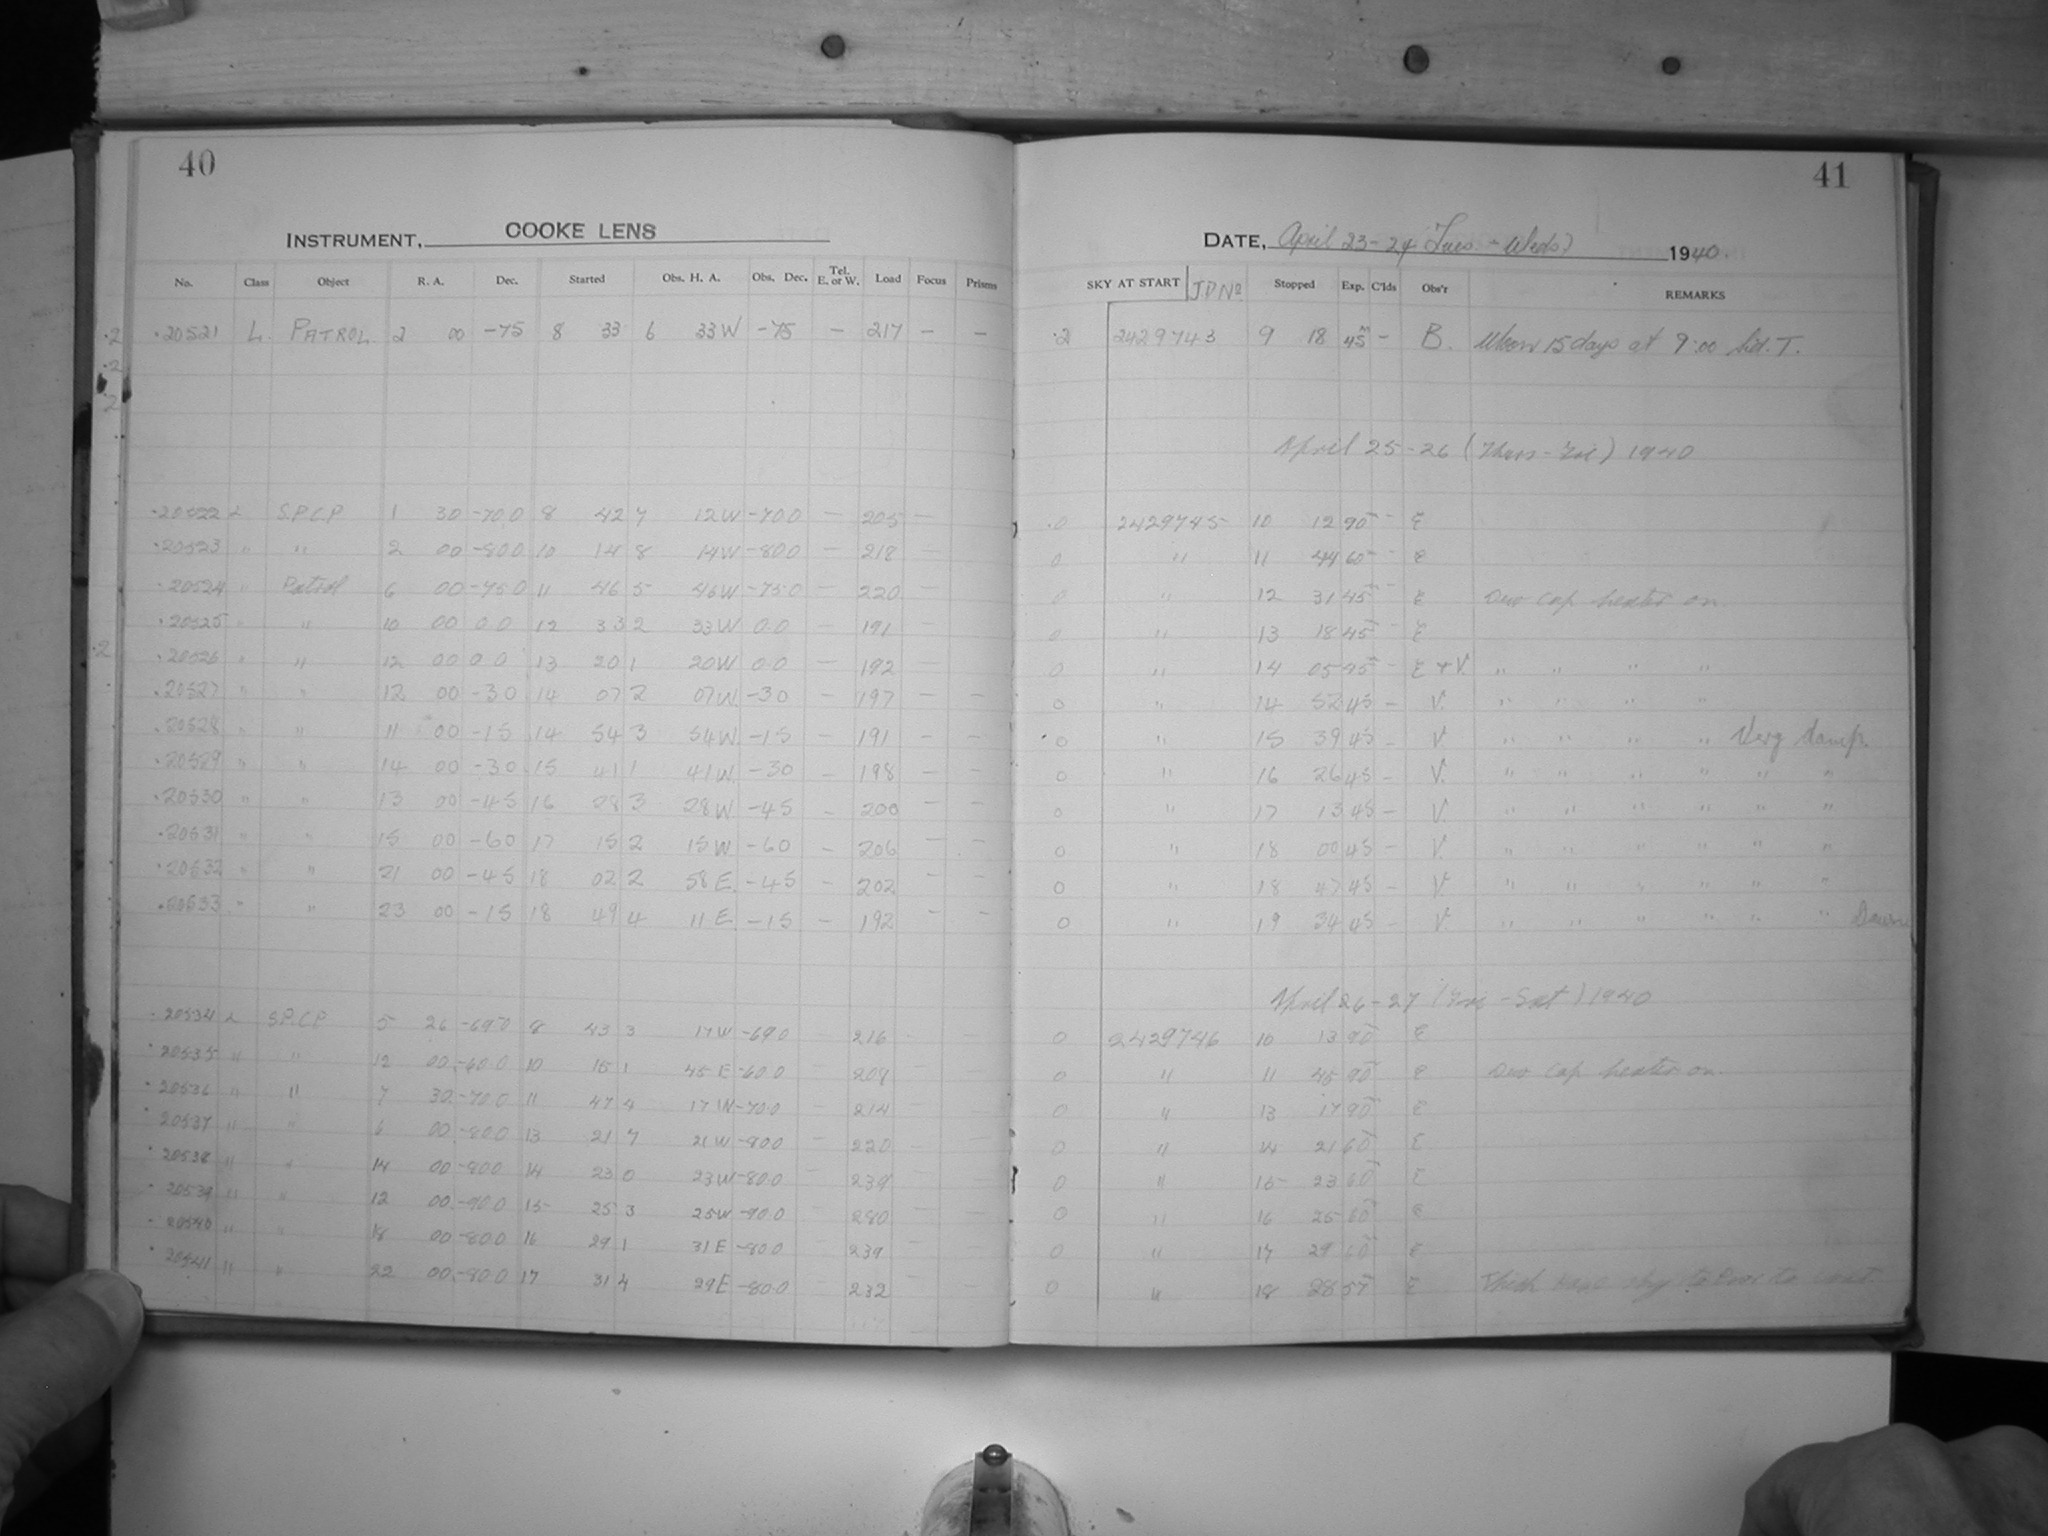 40
INSTRUMENT, COOKE LENS
No. Class Object R. A. Dec. Started Obs. H. A. Obs. Dec. Tel. E. or W. Load Focus Prisms
·2 ·20521 L. PATROL 2 00 -75 8 33 6 33W -75 — 217 — —
·2
2
·20522 L S.P.C.P 1 30 -70.0 8 42 7 12W -70.0 — 205 —
·20523 " " 2 00 -80.0 10 14 8 14W -80.0 — 218 —
·20524 " Patrol 6 00 -75.0 11 46 5 46W -75.0 — 220 —
·20525 " " 10 00 0.0 12 33 2 33W 0.0 — 191 —
·2 ·20526 " " 12 00 0.0 13 20 1 20W 0.0 — 192 —
·20527 " " 12 00 -30 14 07 2 07W -30 — 197 — —
·20528 " " 11 00 -15 14 54 3 54W -15 — 191 — —
·20529 " " 14 00 -30 15 41 1 41W -30 — 198 — —
·20530 " " 13 00 -45 16 28 3 28W -45 — 200 — —
·20531 " " 15 00 -60 17 15 2 15W -60 — 206 — —
·20532 " " 21 00 -45 18 02 2 58E -45 — 202 — —
·20533 " " 23 00 -15 18 49 4 11E -15 — 192 — —
·20534 L S.P.C.P 5 26 -69.0 8 43 3 17W -69.0 216
·20535 " " 12 00 -60.0 10 15 1 45E -60.0 — 209 —
·20536 " " 7 30 -70.0 11 47 4 17W -70.0 — 214 —
·20537 " " 6 00 -80.0 13 21 7 21W -80.0 — 220 —
·20538 " " 14 00 -80.0 14 23 0 23W -80.0 — 239 —
·20539 " " 12 00 -90.0 15 25 3 25W -90.0 — 280 —
·20540 " " 18 00 -80.0 16 29 1 31E -80.0 — 239 —
·20541 " " 22 00 -80.0 17 31 4 29E -80.0 — 232 —
41
DATE, April 23-24 (Tues. - Weds) 1940.
SKY AT START JD No Stopped Exp. C'lds Obs'r REMARKS
·2 2429743 9 18 45m — B. Moon 15 days at 9:00 Sid. T.
April 25-26 (Thurs - Fri) 1940
·0 2429745 10 12 90 — E
0 " 11 44 60 — E
0 " 12 31 45 — E Dew cap heater on
0 " 13 18 45 — E
0 " 14 05 45 — E + V. " " " "
0 " 14 52 45 — V. " " " "
0 " 15 39 45 — V. " " " " Very damp.
0 " 16 26 45 — V. " " " " " "
0 " 17 13 45 — V. " " " " " "
0 " 18 00 45 V. " " " " " "
0 " 18 47 45 — V. " " " " " "
0 " 19 34 45 — V. " " " " " " Dawn
April 26-27 (Fri - Sat) 1940
0 2429746 10 13 90 E
0 " 11 45 90 E Dew cap heater on.
0 " 13 17 90 E
0 " 14 21 60 E
0 " 15 23 60 E
0 " 16 25 60 E
0 " 17 29 60 E
0 " 18 28 57 E Thick haze sky